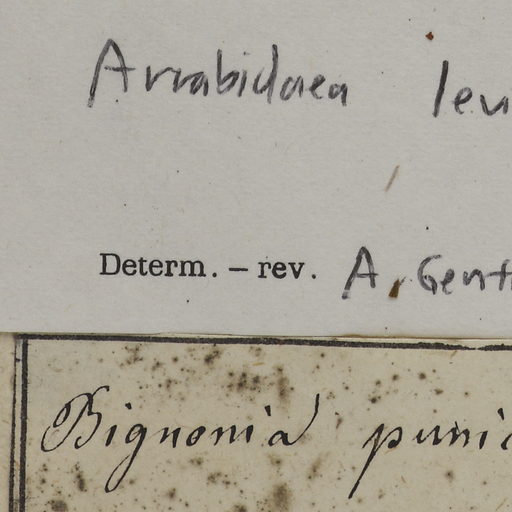 Arrabidaea leu
Determ. – rev. A. Gent
Bignonia punic